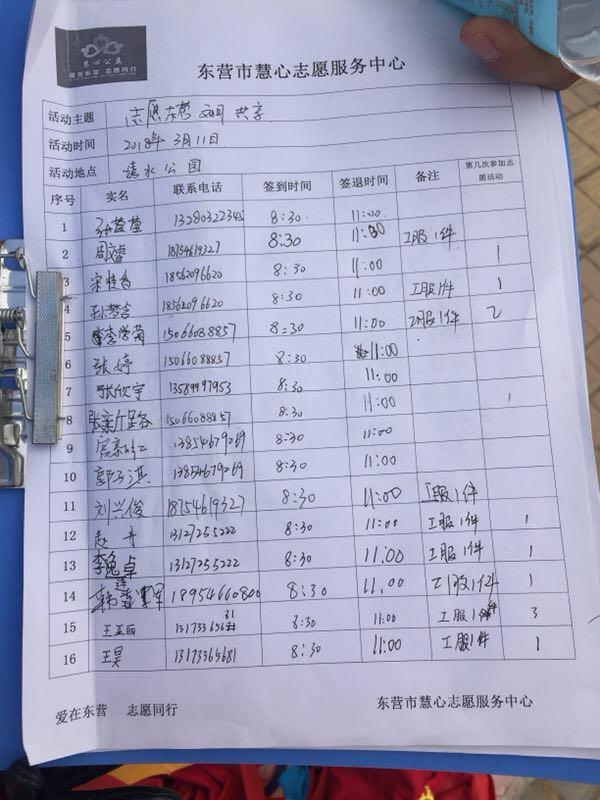 慧心公益
爱在东营 志愿同行
东营市慧心志愿服务中心
活动主题 志愿东营 文明共享
活动时间 2018年3月11日
活动地点 清水公园
序号 实名 联系电话 签到时间 签退时间 备注 第几次参加志愿活动
1 13280322345 8:30 11:00
2 周 18754619327 8:30 11:00 工服1件
3 宋桂香 18562096620 8:30 11:00 1
4 孙梦吉 18562096620 8:30 11:00 工服1件 1
5 李学菊 15066088857 8:30 11:00 工服1件 2
6 张婷 15066088857 8:30 11:00
7 张欣宇 13589997953 8:30 11:00
8 15066088857 8:30 11:00 1
9 13854679269 8:30 11:00
10 郭子淇 13854679269 8:30 11:00
11 刘兴俊 18754619327 8:30 11:00 工服1件
12 赵丹 13127255222 8:30 11:00 工服1件 1
13 李逸卓 13127255222 8:30 11:00 工服1件 1
14 韩莲军 18954660800 8:30 11:00 工服1件 1
15 王亚丽 8:30 11:00 工服1件 3
16 王昊 13173365681 8:30 11:00 工服1件 1
爱在东营 志愿同行 东营市慧心志愿服务中心